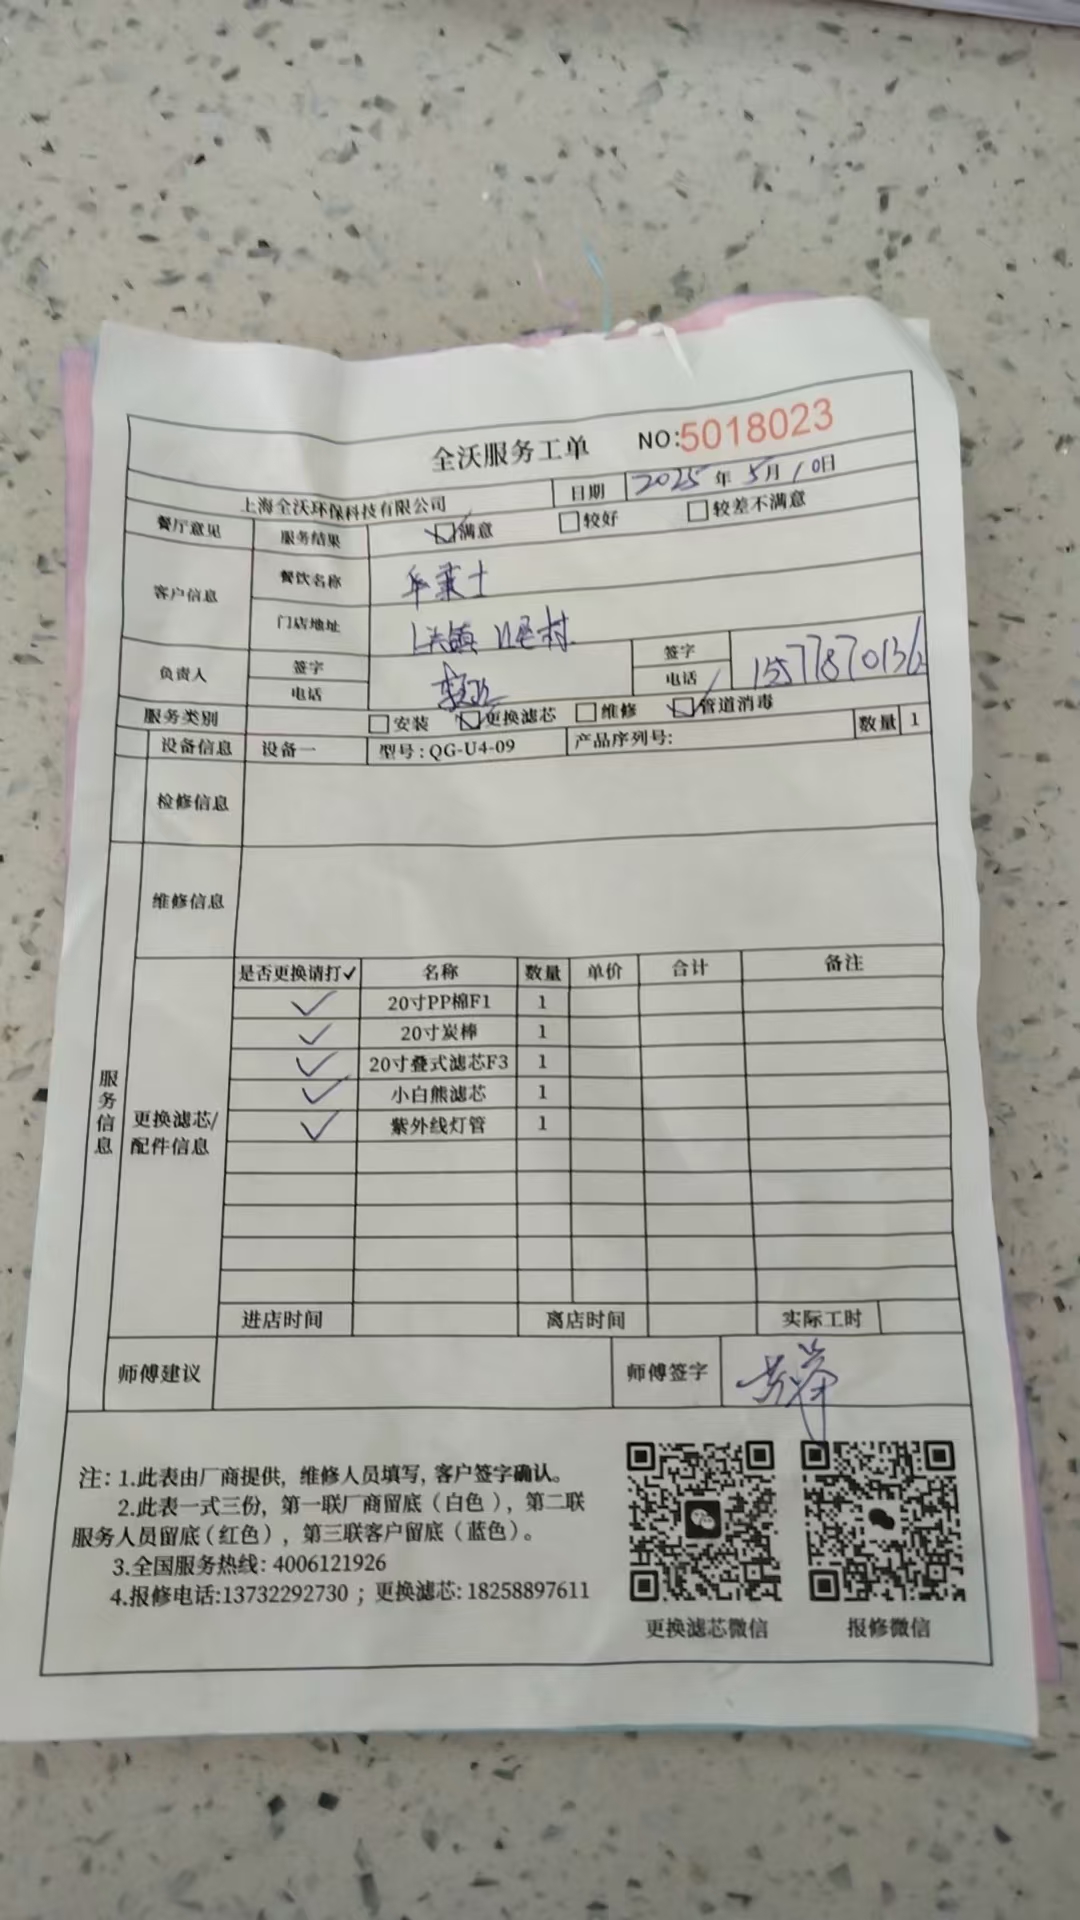 全沃服务工单 NO:5018023
上海全沃环保科技有限公司 日期 2025年5月10日
餐厅意见 服务结果 满意 较好 较差不满意
客户信息 餐饮名称 华莱士
门店地址 上关镇 村
负责人 签字 签字
电话 电话 1577870136
服务类别 安装 更换滤芯 维修 管道消毒
设备信息 设备一 型号:QG-U4-09 产品序列号: 数量 1
检修信息
维修信息
服务信息
更换滤芯/
配件信息
是否更换请打✓ 名称 数量 单价 合计 备注
✓ 20寸PP棉F1 1
✓ 20寸炭棒 1
✓ 20寸叠式滤芯F3 1
✓ 小白熊滤芯 1
✓ 紫外线灯管 1
进店时间 离店时间 实际工时
师傅建议 师傅签字
注：1.此表由厂商提供, 维修人员填写, 客户签字确认。
2.此表一式三份，第一联厂商留底（白色），第二联
服务人员留底(红色)，第三联客户留底（蓝色）。
3.全国服务热线: 4006121926
4.报修电话:13732292730；更换滤芯: 18258897611
更换滤芯微信 报修微信